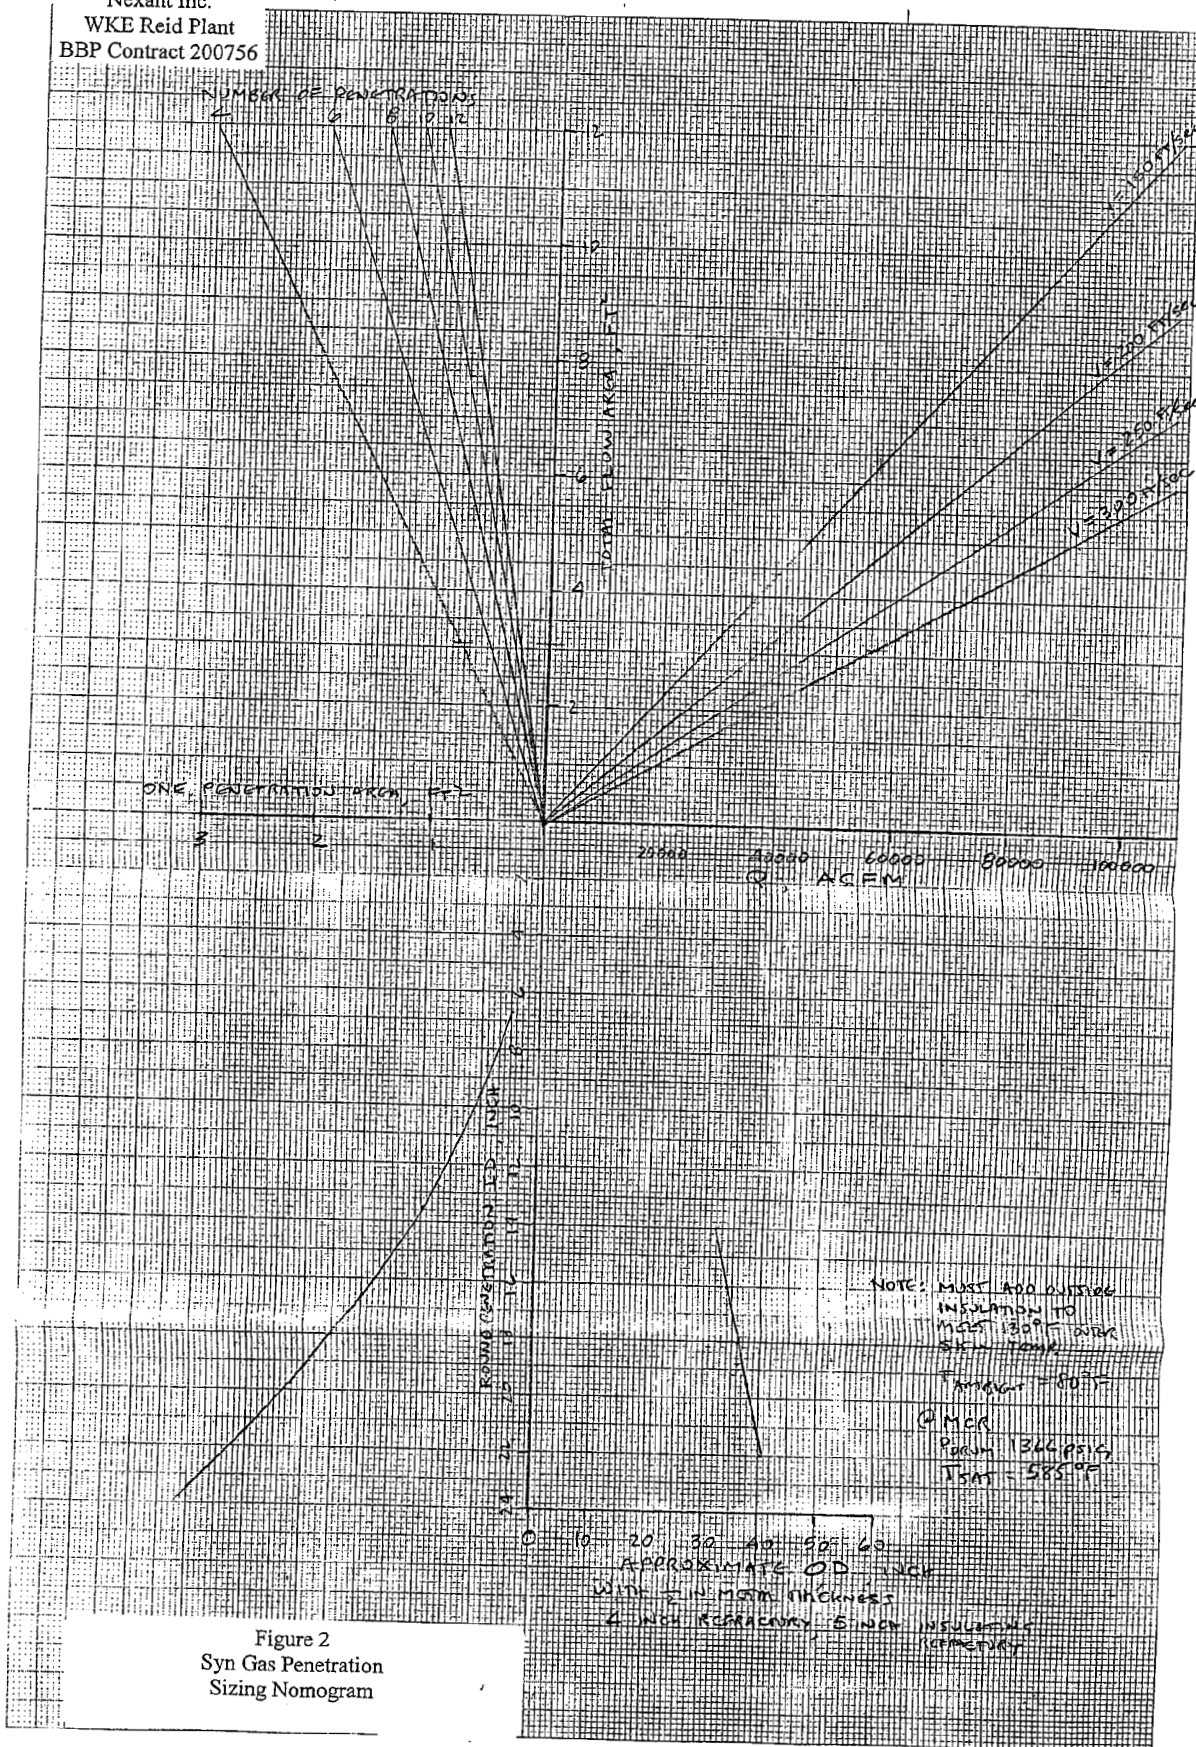 Nexant Inc.
WKE Reid Plant
BBP Contract 200756
NUMBER OF PENETRATIONS
4 6 8 10 12
12
10
8
6
4
2
TOTAL FLOW AREA, FT²
V=150 FT/SEC
V=200 FT/SEC
V=250 FT/SEC
V=300 FT/SEC
ONE PENETRATION AREA, FT2
3 2 1
20000 40000 60000 80000 100000
Q, ACFM
2
4
6
8
10
12
14
16
18
20
22
24
ROUND PENETRATION ID, INCH
NOTE: MUST ADD OUTSIDE
INSULATION TO
MEET 130°F OUTER
SKIN TEMP.
TAMBIENT = 80°F
@ MCR
PDRUM 1366 PSIG
TSAT = 585°F
0 10 20 30 40 50 60
APPROXIMATE OD INCH
WITH 1/2 IN METAL THICKNESS
4 INCH REFRACTORY, 5 INCH INSULATING
REFRACTORY
Figure 2
Syn Gas Penetration
Sizing Nomogram